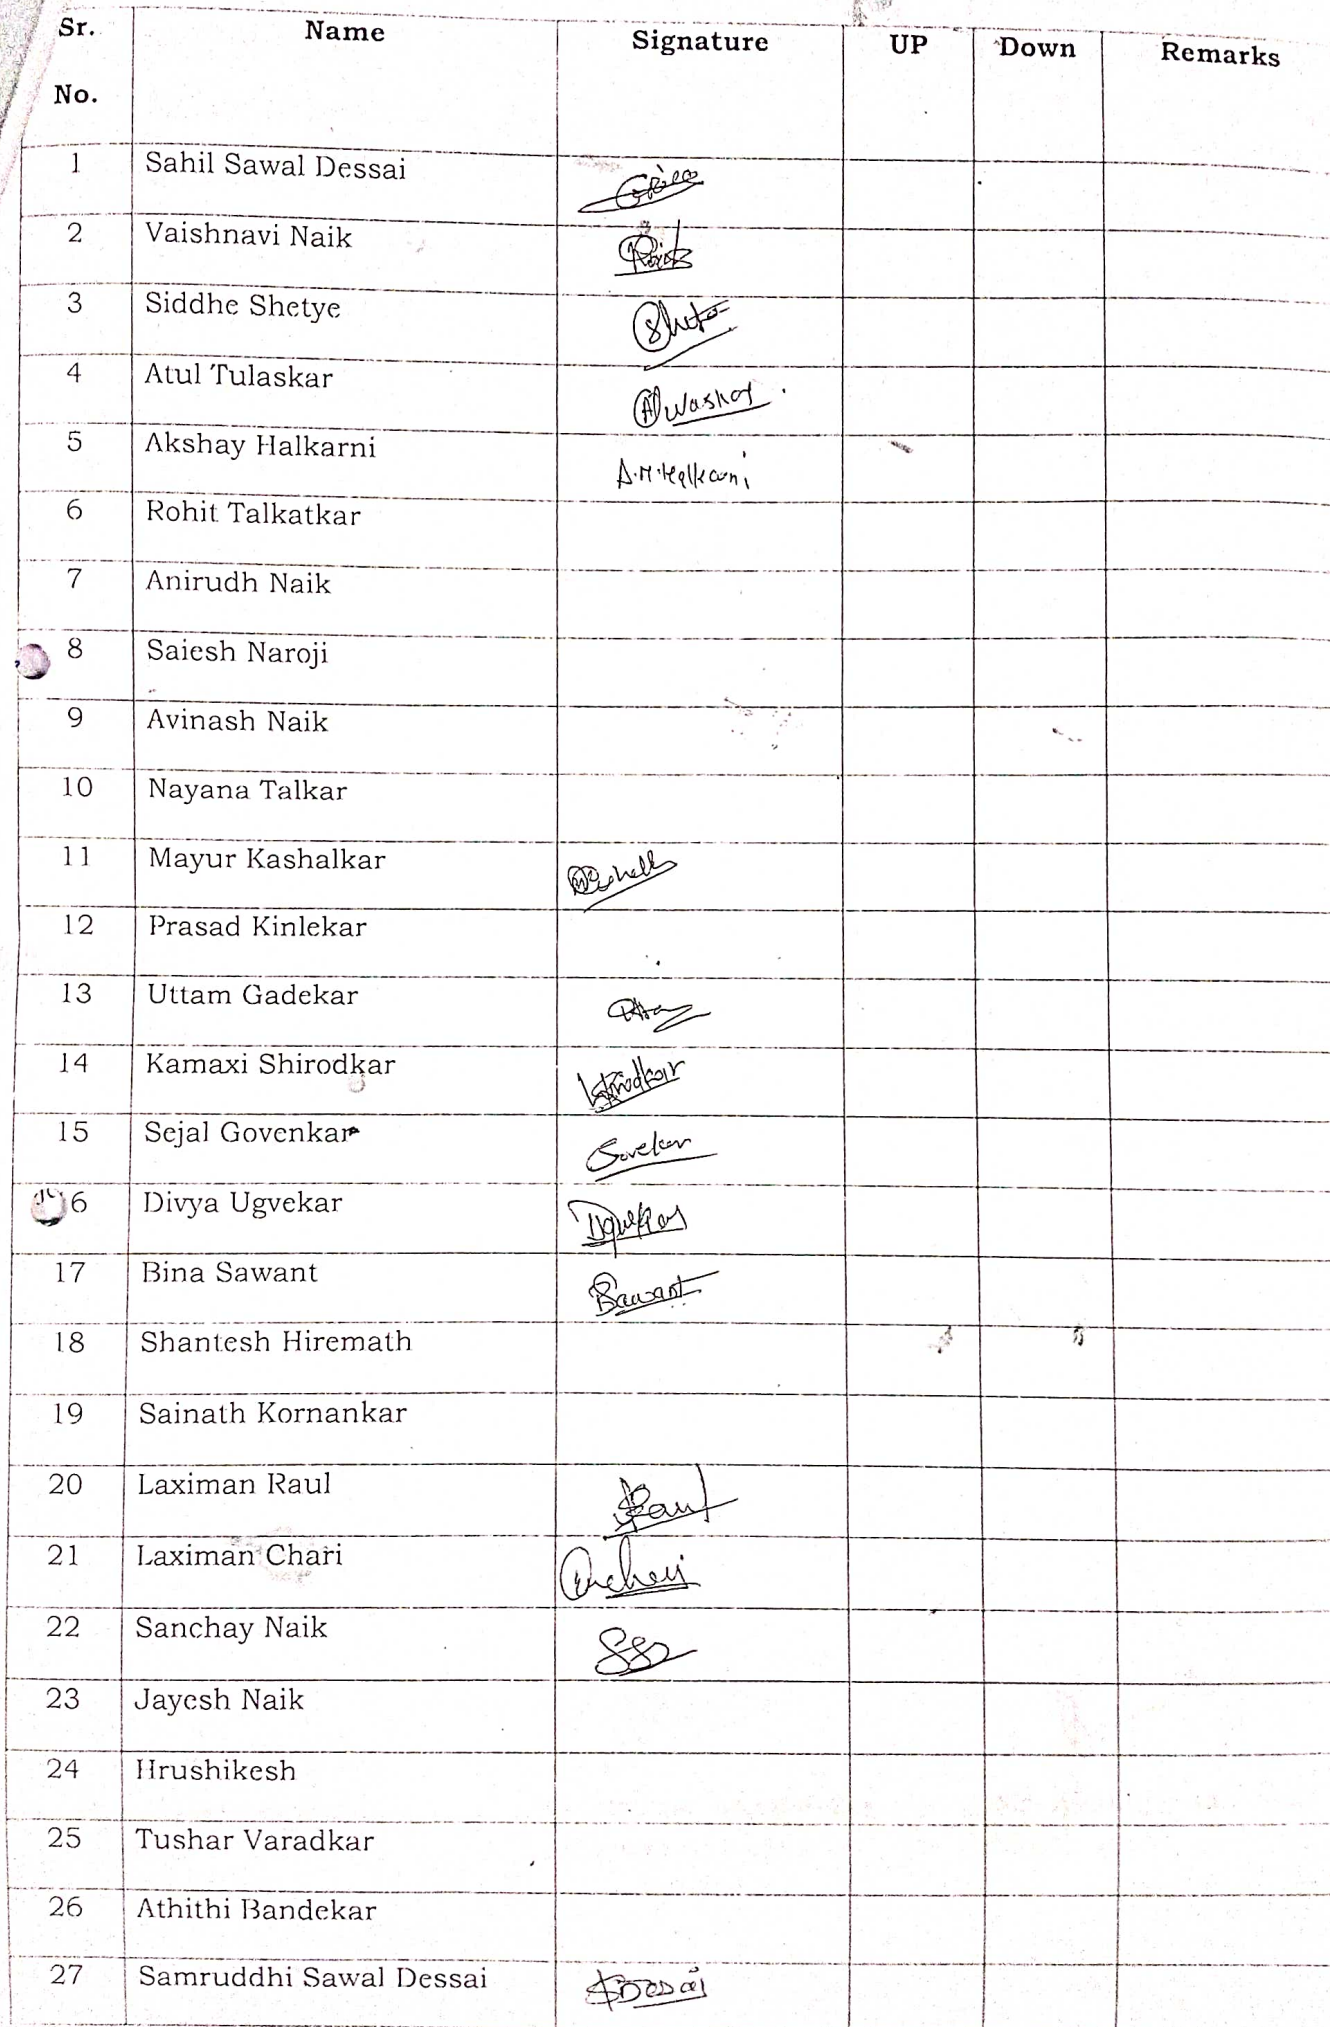 Sr. No. Name Signature UP Down Remarks
1 Sahil Sawal Dessai
2 Vaishnavi Naik
3 Siddhe Shetye
4 Atul Tulaskar
5 Akshay Halkarni A.M.Halkarni
6 Rohit Talkatkar
7 Anirudh Naik
8 Saiesh Naroji
9 Avinash Naik
10 Nayana Talkar
11 Mayur Kashalkar
12 Prasad Kinlekar
13 Uttam Gadekar
14 Kamaxi Shirodkar
15 Sejal Govenkar
6 Divya Ugvekar
17 Bina Sawant Bsawant
18 Shantesh Hiremath
19 Sainath Kornankar
20 Laximan Raul
21 Laximan Chari
22 Sanchay Naik
23 Jayesh Naik
24 Hrushikesh
25 Tushar Varadkar
26 Athithi Bandekar
27 Samruddhi Sawal Dessai